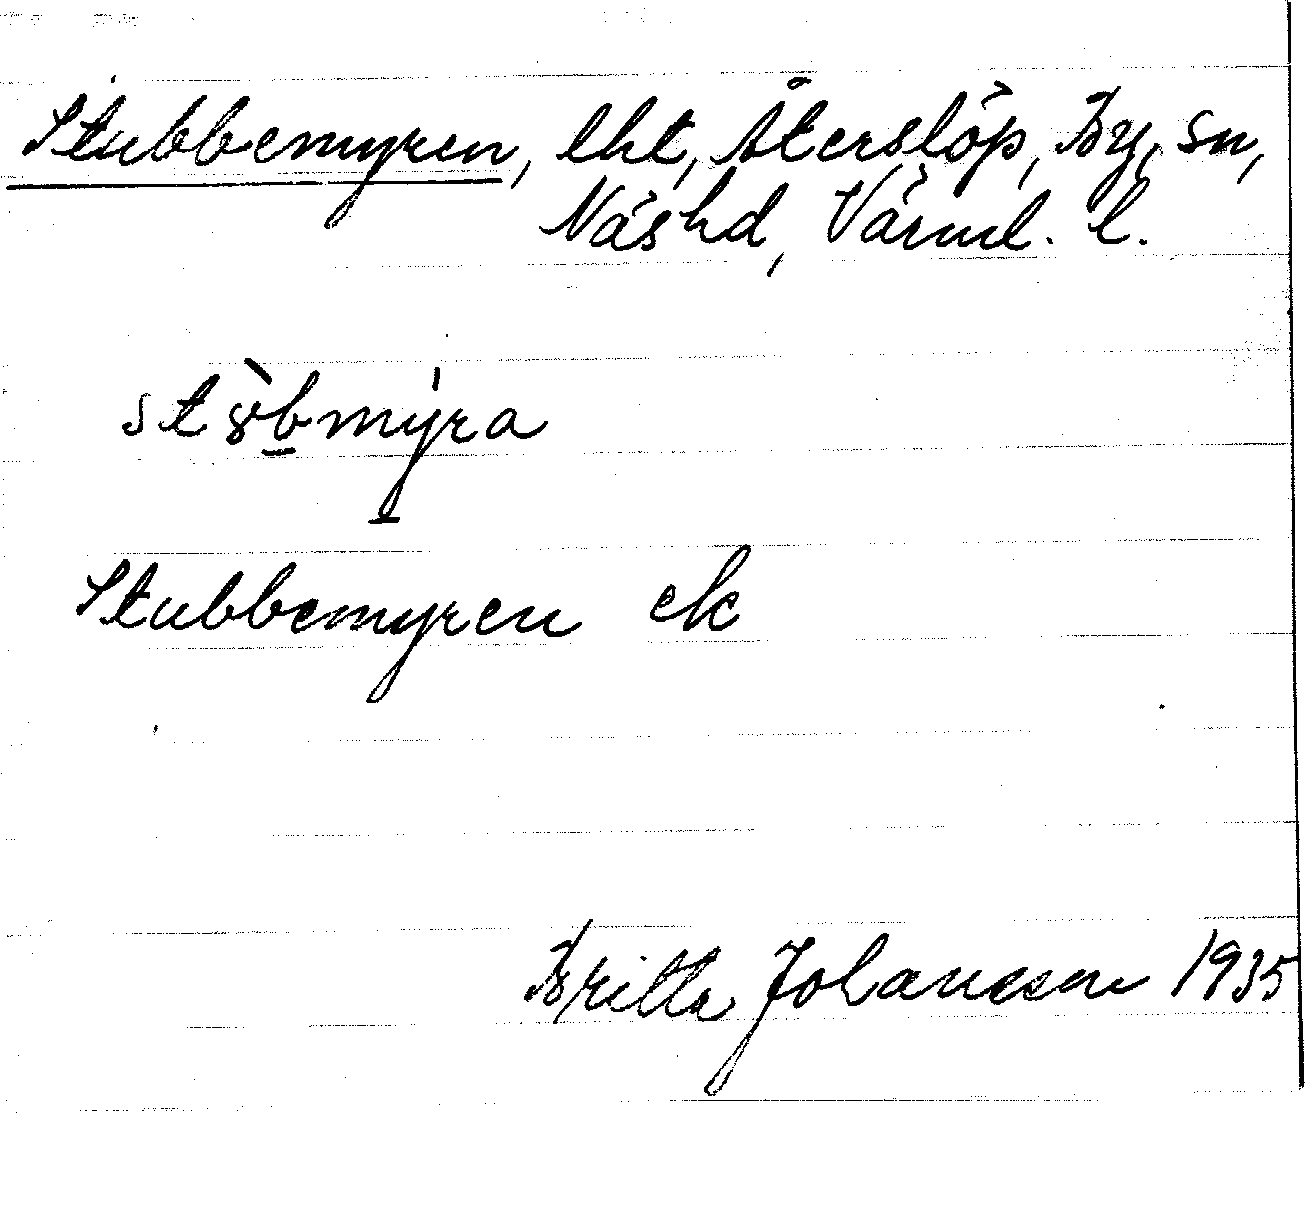 Stubbemyren, lht, Återslöp, By, sn,
Näshd, Värml. l.
st8̀bmy̍ra
Stubbemyren ek
Britta Johansson 1935